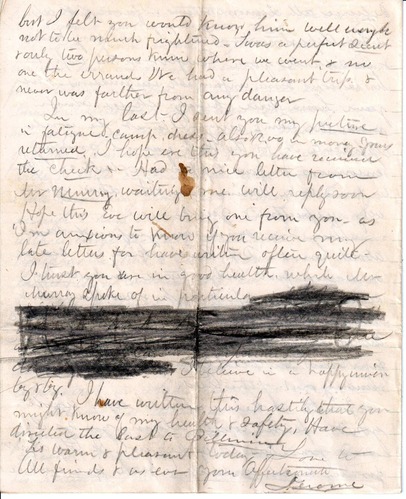 but I felt you would know him well enough
not to be much frightened. It was a perfect secret
& only two persons knew where we went, & no
one the errand. We had a pleasant trip &
never was farther from any danger
In my last I sent you my picture
in fatigue camp dress also
returned. I hope ere this you have received
the check. Had a nice letter from
Mr Murray me will reply soon
Hope this Eve will bring one from you as
I'm anxious to know if you receive my
late letters for have written often quite
I trust you are in good health while Mr
Murray spoke of in particular
believe in a happy union
by & by. I have written this hastily that you
might know of my health & safety. Have
the last to
Is warm & pleasant today. Love to
All friends & as ever your Affectionate
Jerome